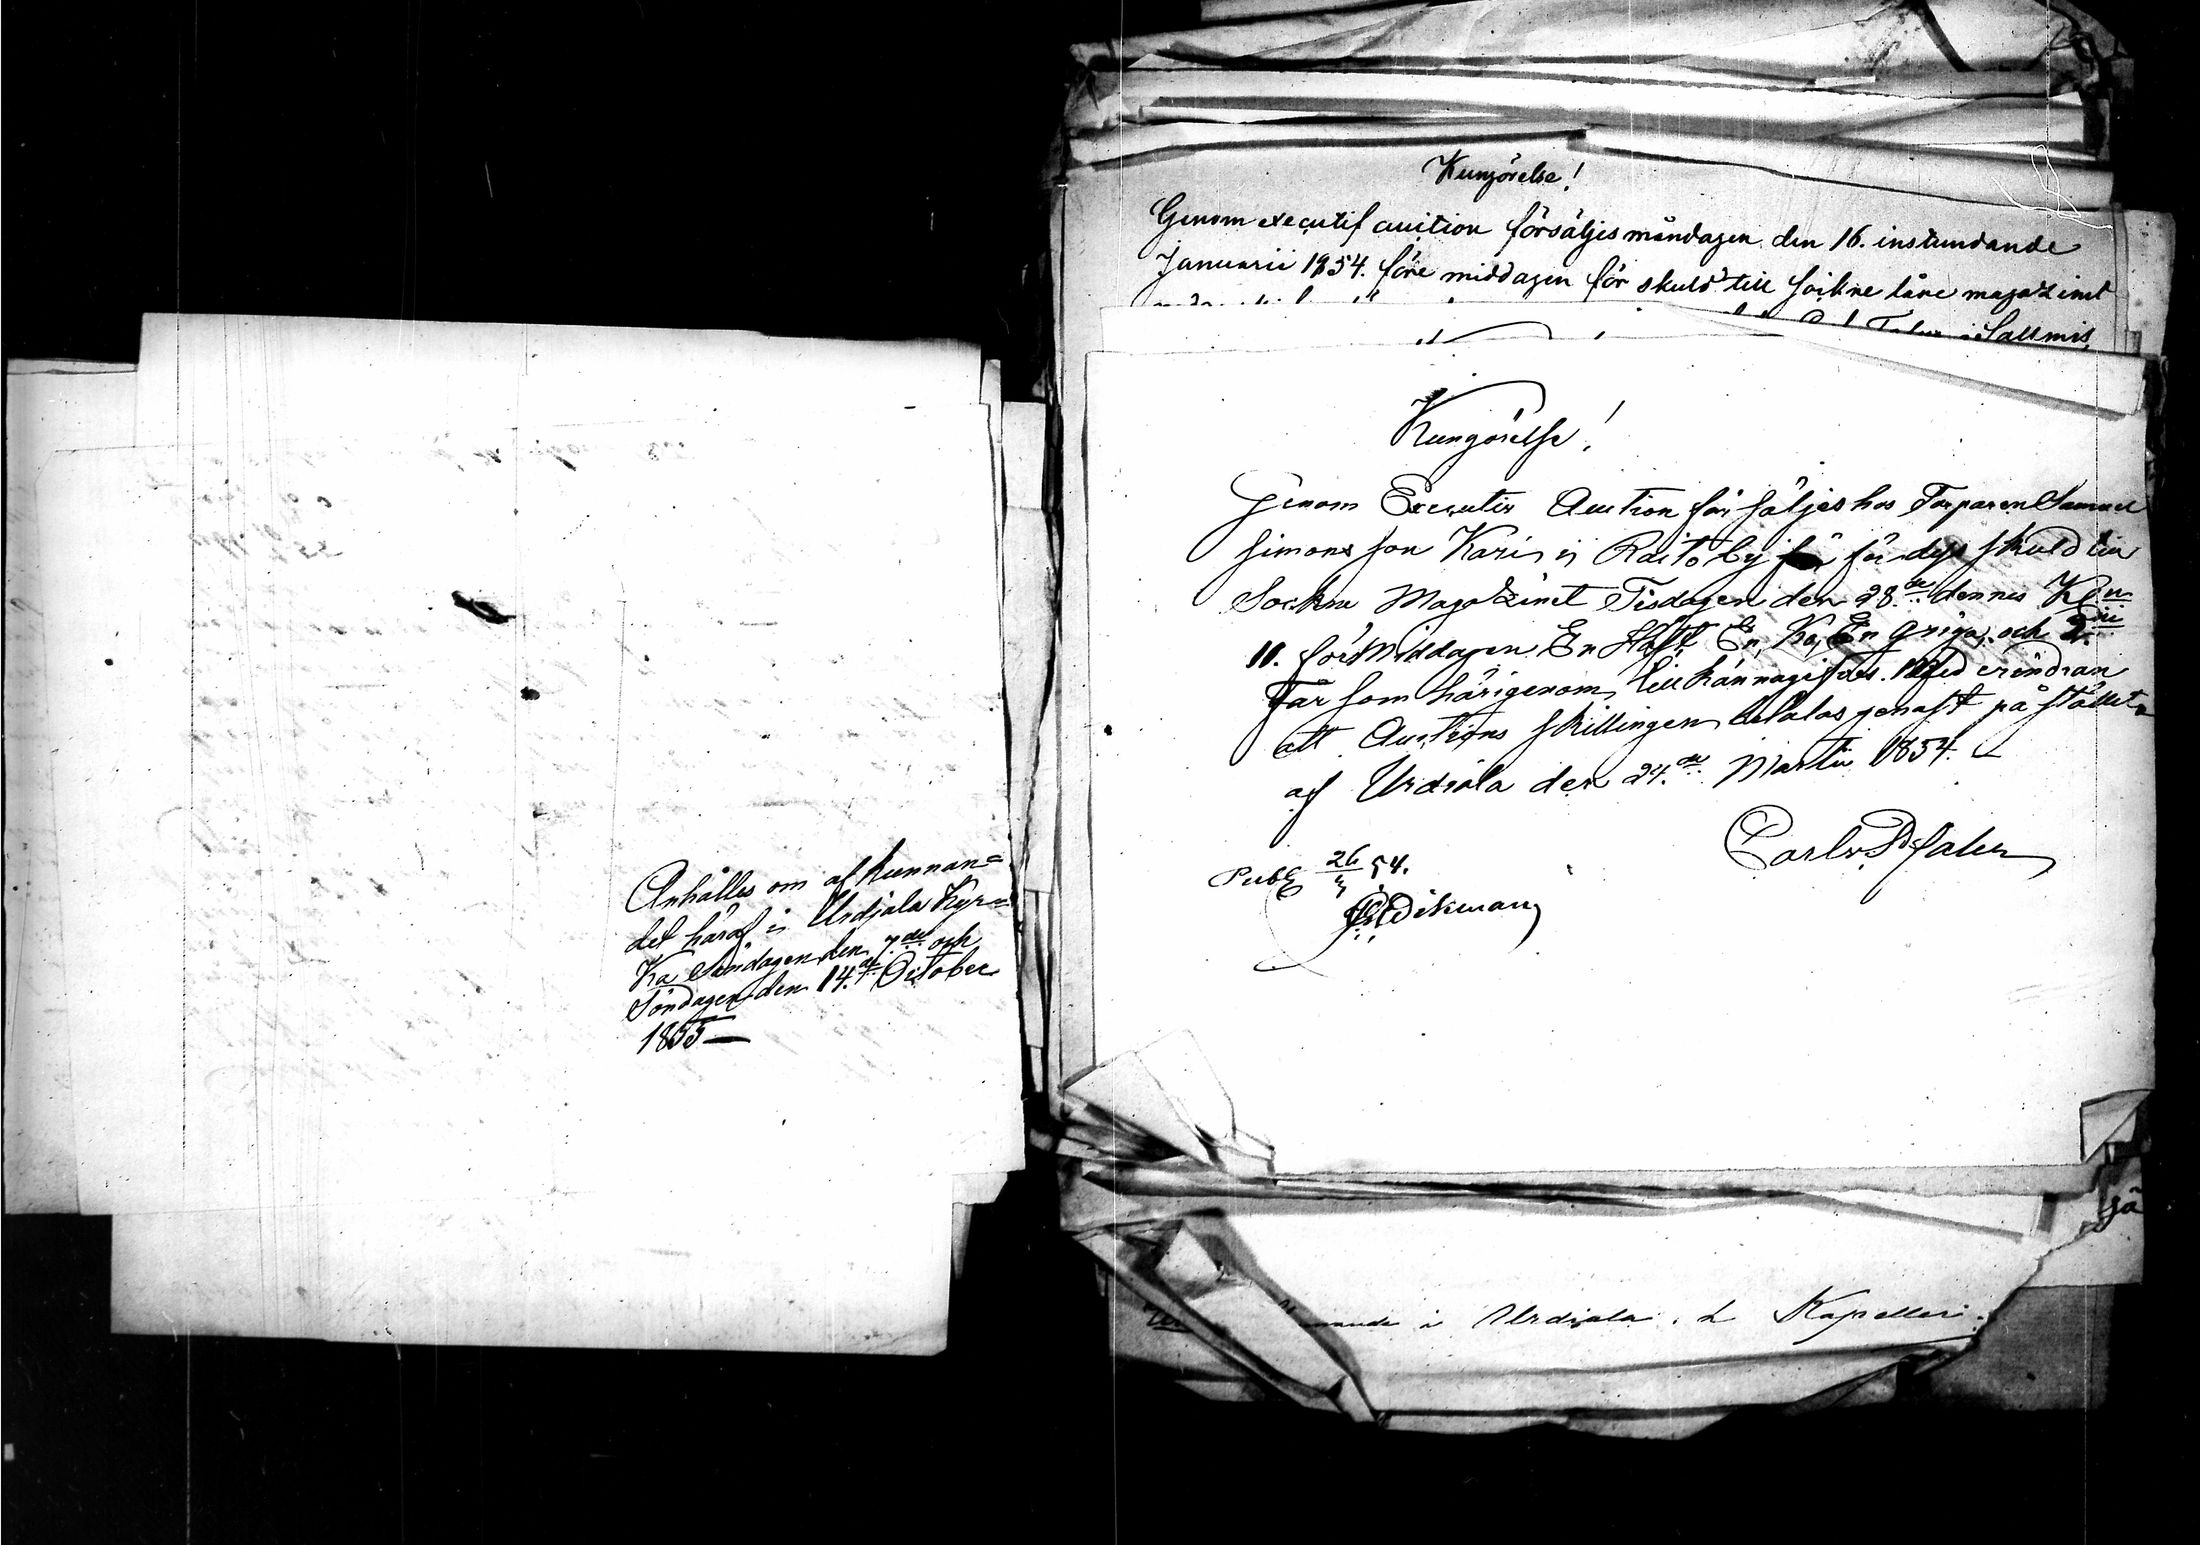 Anhålles om af kunnan=
det häraf i Urdjala Kyr=
ka Söndagen den 7de och
Söndagen den 14de October
1855
Kungörelse!
Genom executif auction försäljes måndagen den 16. instundande
Januarii 1854. före middagen för skuld till sockne låne magazinet
Sallmis
Kungörelse!
Genom Executiv Auction för säljes hos Torparen Samuel
Simons son Kari, i Raito by för dess skuld till
Sockne Magazinet Tisdagen den 28de dennes Kl.
10. för Middagen En Häst, En, Ko, En qviga, och 2ne
Får som härigenom, till känna gifves. Med erindran
att Auctions skillingen betalas genast på stället
af Urdiala den 24de Martii 1854.
Publ 26/3 54.
jä
i Urdiala. Kapelleri